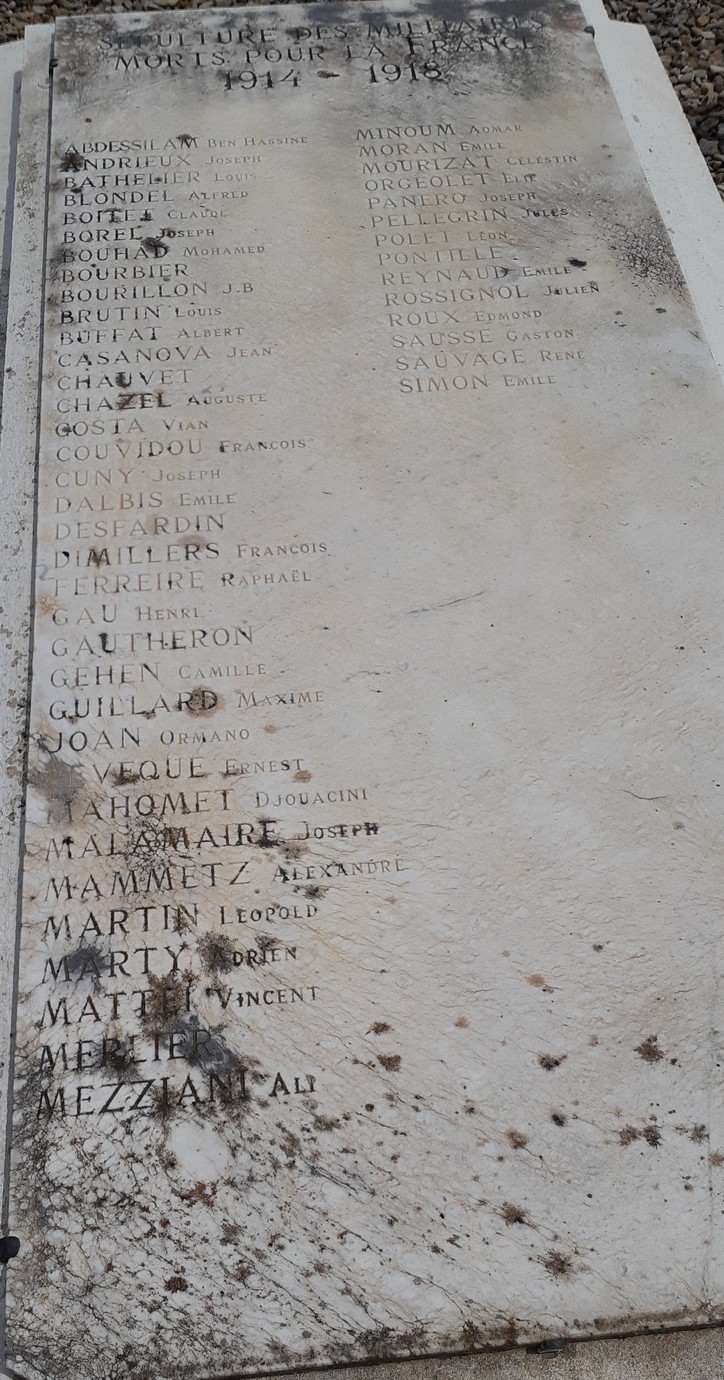 SEPULTURE DES MILITAIRES
MORTS POUR LA FRANCE
1914 - 1918
ABDESSILAM BEN HASSINE
ANDRIEUX JOSEPH
BATHELIER LOUIS
BLONDEL ALFRED
BOITET CLAUDE
BOREL JOSEPH
BOUHAD MOHAMED
BOURBIER
BOURILLON J.B
BRUTIN LOUIS
BUFFAT ALBERT
CASANOVA JEAN
CHAUVET
CHAZEL AUGUSTE
COSTA VIAN
COUVIDOU FRANÇOIS
CUNY JOSEPH
DALBIS EMILE
DESFARDIN
DIMILLERS FRANÇOIS
FERREIRE RAPHAËL
GAU HENRI
GAUTHERON
GEHEN CAMILLE
GUILLARD MAXIME
JOAN ORMANO
LEVEQUE ERNEST
MAHOMET DJOUACINI
MALAMAIRE JOSEPH
MAMMETZ ALEXANDRE
MARTIN LÉOPOLD
MARTY ADRIEN
MATTEI VINCENT
MERLIER
MEZZIANI ALI
MINOUM AOMAR
MORAN EMILE
MOURIZAT CÉLESTIN
ORGEOLET ELIE
PANERO JOSEPH
PELLEGRIN JULES
POLET LÉON
PONTILLE
REYNAUD EMILE
ROSSIGNOL JULIEN
ROUX EDMOND
SAUSSE GASTON
SAUVAGE RENÉ
SIMON EMILE